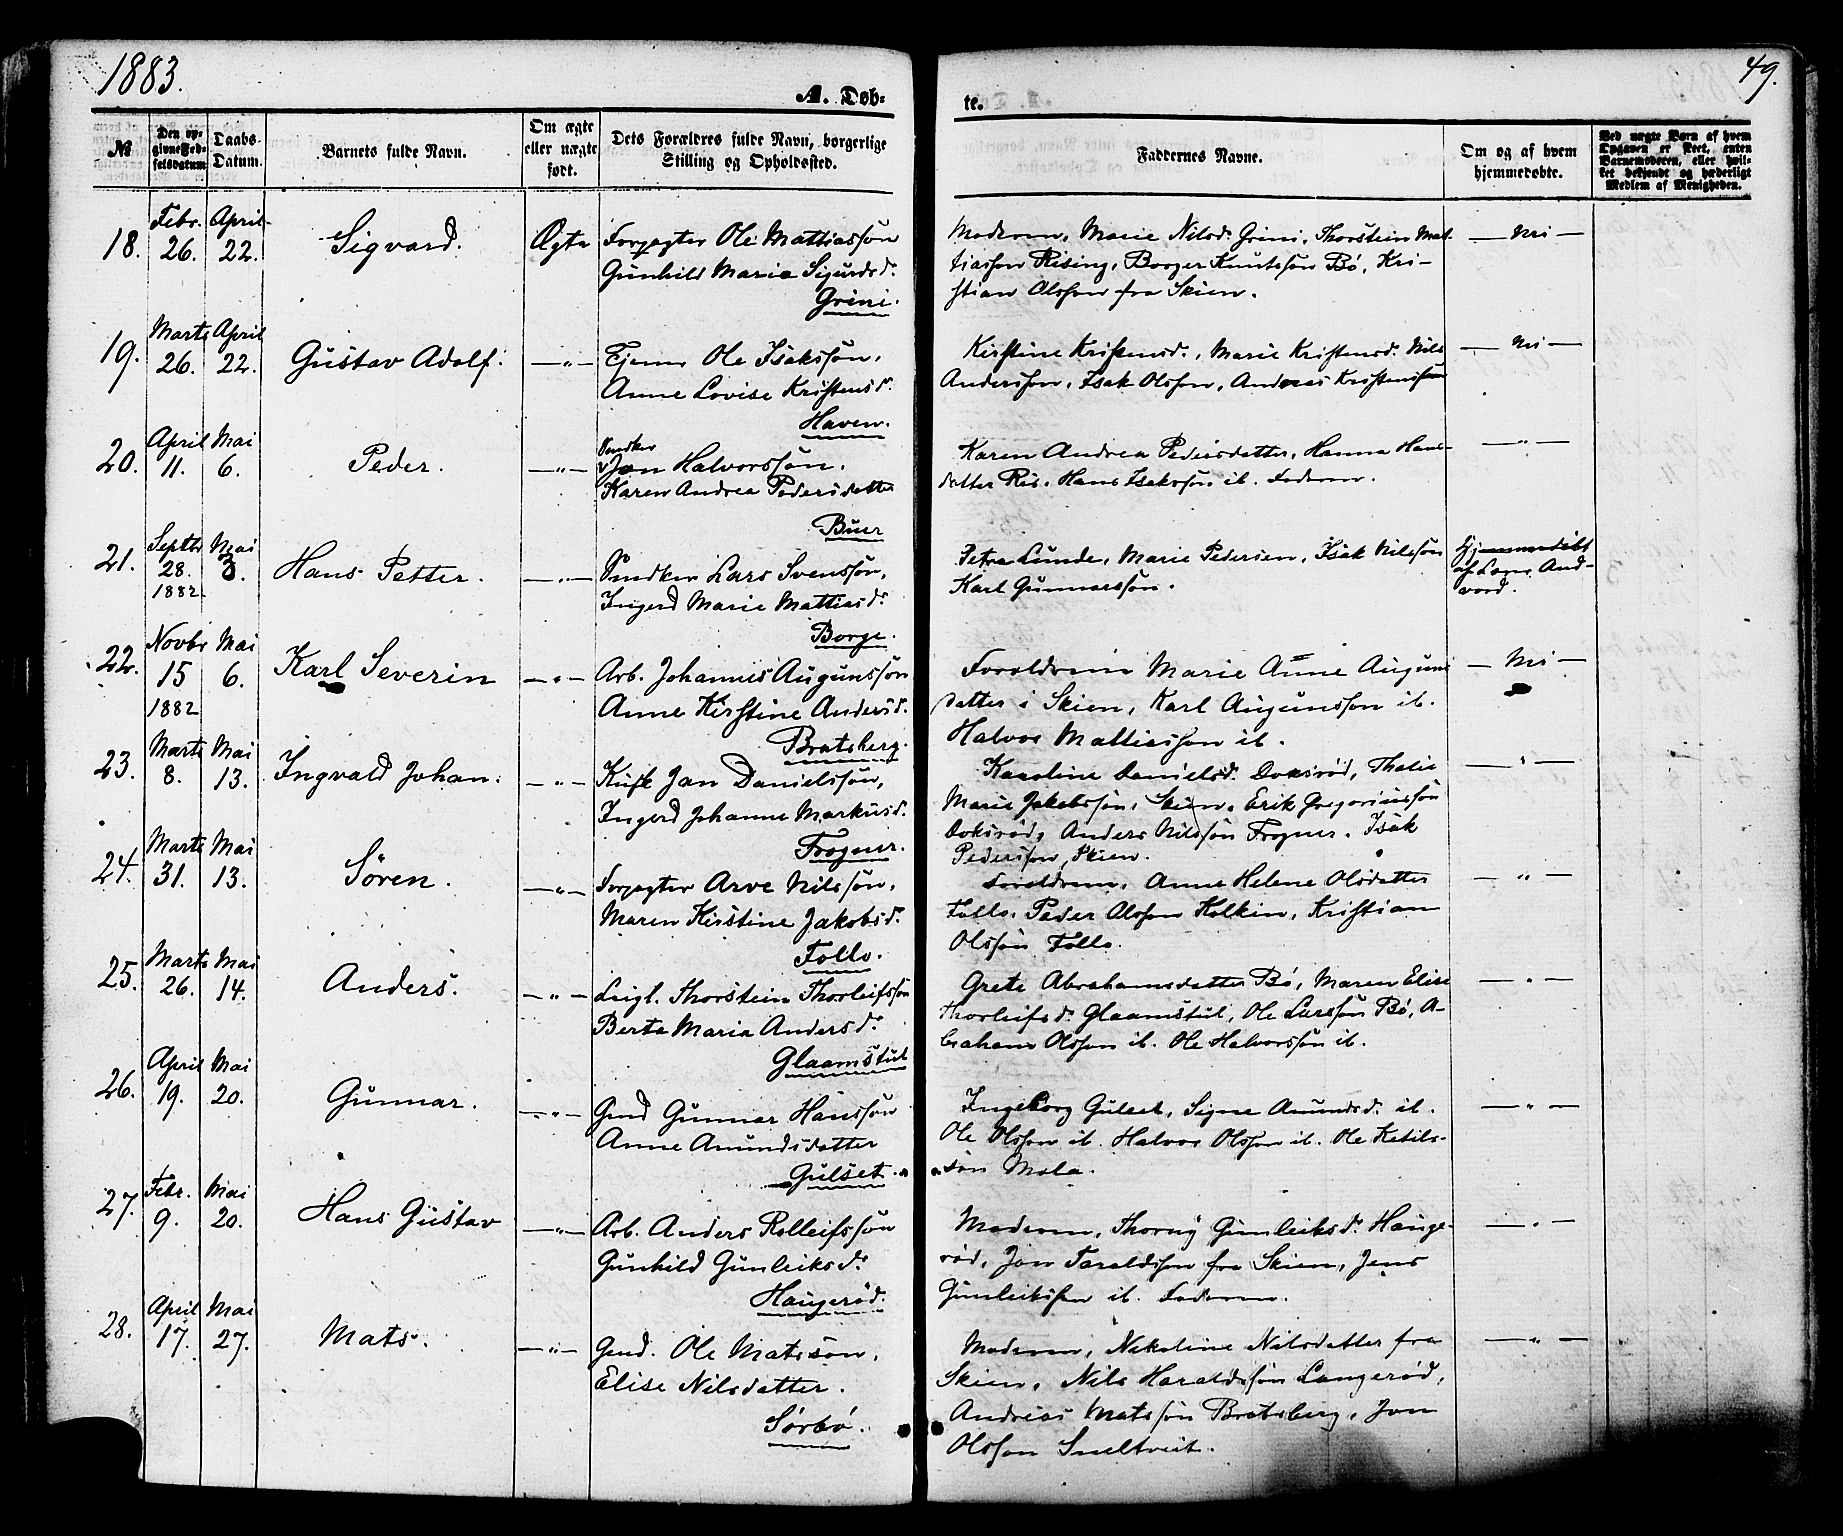 1883.
49.
A. Døb-
te.
№
Den op-
givne Fød-
selsdatum
Daabs-
Datum.
Barnets fulde Navn.
Om ægte
eller uægte
født.
Dets Forældres fulde Navn, borgerlige
Stilling og Opholdssted.
Faddernes Navne.
Om og af hvem
hjemmedøbte.
Ved uægte Børn af hvem
Opgaven er skeet, enten
Barnemoderen, eller hvil-
ket bekjendt og hæderligt
Medlem af Menigheden.
18.
Febr.
26.
April
22.
Sigvard.
Ægte
Forpagter Ole Mattiassøn
Gunhild Maria Sigurdsd.
Grini.
Moderen, Marie Nilsd. Grini, Thorstein Mat
tiassøn Rising, Borger Knutssøn Bø, Kri-
stian Olsson fra Skien.
— Nei —
19.
Marts
26.
April
22.
Gustav Adolf.
— " —
Tjener Ole Isakssøn,
Anne Lovise Kristensd.
Haven.
Kirstine Kristensd., Marie Kristensd. Nils
Anderssøn, Isak Olsson, Andreas Kristenssøn
— Nei —
20.
April
11.
Mai
6.
Peder.
— " —
Smdker
Jan Halvorssøn.
Karen Andrea Pedersdatter
Buer
Karen Andrea Pedersdatter, Hanna Hans-
datter Ris. Hans Isakssøn ib. Faderen.
— " —
21.
Septbr
28.
1882
Mai
3.
Hans Petter.
— " —
Lars Svenssøn,
Ingerd Marie Mattiasd.
Borge.
Petra Lunde, Marie Pedersen, Isak Nilssøn
Karl Gunnarssøn.
Hjemmedøbt
af Lars And-
vord.
22.
Novbr
15
1882
Mai
6.
Karl Severin
— " —
Arb. Johannes Augunssøn
Anne Kirstine Andersd.
Bratsberg.
Forældrene Marie Anne Auguns
datter i Skien, Karl Augunsson ib.
Halvor Mattiassøn ib.
— Nei —
23.
Marts
8.
Mai
13.
Ingvald Johan.
— " —
Kusk Jan Danielssøn,
Ingerd Johanne Markusd.
Frogner.
Karoline Danielsd. Doksrød, Thalie
Marie Jakobssøn, Skien, Erik Gregoriussøn
Doksrød, Anders Nilssøn Frogner. Isak
Pederssøn, Skien.
— " —
24.
Marts
31.
Mai
13.
Sören.
— " —
Forpagter Arve Nilssøn,
Maren Kirstine Jakobsd.
Follo.
Forældrene, Anne Helene Olsdatter
Follo. Peder Olsson Kolkin, Kristian
Olssøn Follo.
— " —
25.
Marts
26.
Mai
14.
Anders.
— " —
Leigl. Thorstein Thorleifssøn
Berte Maria Andersd.
Glaamstul
Grete Abrahamsdatter Bø, Maren Elise
Thorleifsd. Glaamstul, Ole Larssøn Bø, A-
braham Olsson ib. Ole Halvorssøn ib.
— " —
26.
April
19.
Mai
20.
Gunnar.
— " —
Gmd Gunnar Hanssøn
Anne Amundsdatter
Gulset.
Ingeborg Gulset, Signe Amundsd. ib.
Ole Olsson ib. Halvor Olsson ib. Ole Ketils-
søn Mela.
— " —
27.
Febr.
9.
Mai
20.
Hans Gustav
— " —
Arb. Anders Rolleifssøn
Gunhild Gunleiksd.
Haugerød.
Moderen, Thorny Gunleiksd. Hauge-
rød, Jan Taraldssøn fra Skien, Jens
Gunleikssøn ib. Faderen.
— " —
28.
April
17.
Mai
27.
Mats.
— " —
Gmd. Ole Matssøn,
Elise Nilsdatter.
Sørbø.
Moderen, Nikoline Nilsdatter fra
Skien, Nils Haraldssøn Langerød,
Andreas Matssøn Bratsberg, Jon
Olsson Sneltveit.
— " —